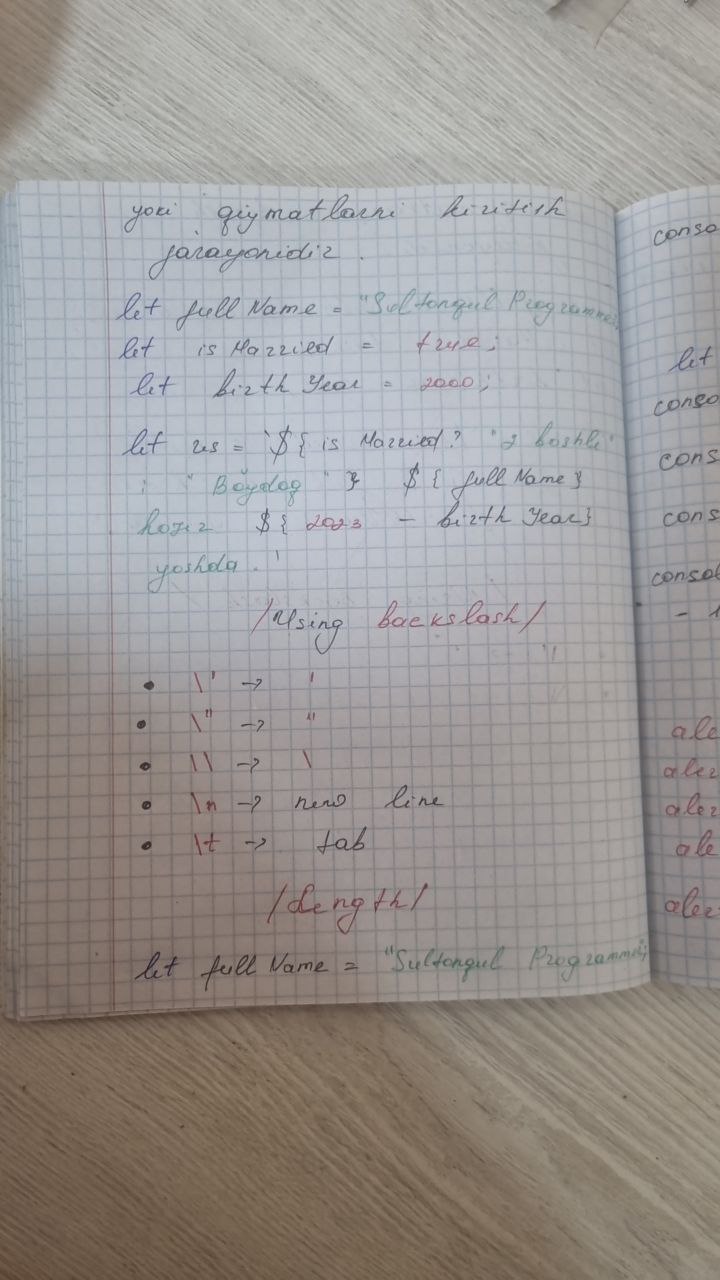 yoki qiymatlarni kiritish
jarayonidir.
let full Name = "Sultonqul Programmer";
let is Married = true;
let birth Year = 2000;
let res = `${ is Married? "2 boshli"
: "Bo'ydoq" } ${ full Name }
hozir ${ 2023 - birth Year}
yoshda.`
/Using backslash/
• \' -> '
• \" -> "
• \\ -> \
• \n -> new line
• \t -> tab
/Length/
let full Name = "Sultonqul Programmer";
conso
let
conso
cons
cons
consol
-
ale
aler
aler
ale
aler